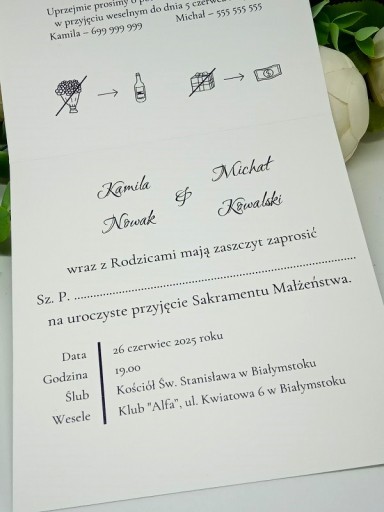 Uprzejmie prosimy o
w przyjęciu weselnym do dnia 5 czerwca
Kamila – 699 999 999 Michał – 555 555 555
Kamila & Michał
Nowak Kowalski
wraz z Rodzicami mają zaszczyt zaprosić
Sz. P. ................................................................
na uroczyste przyjęcie Sakramentu Małżeństwa.
Data 26 czerwiec 2025 roku
Godzina 19.00
Ślub Kościół Św. Stanisława w Białymstoku
Wesele Klub "Alfa", ul. Kwiatowa 6 w Białymstoku